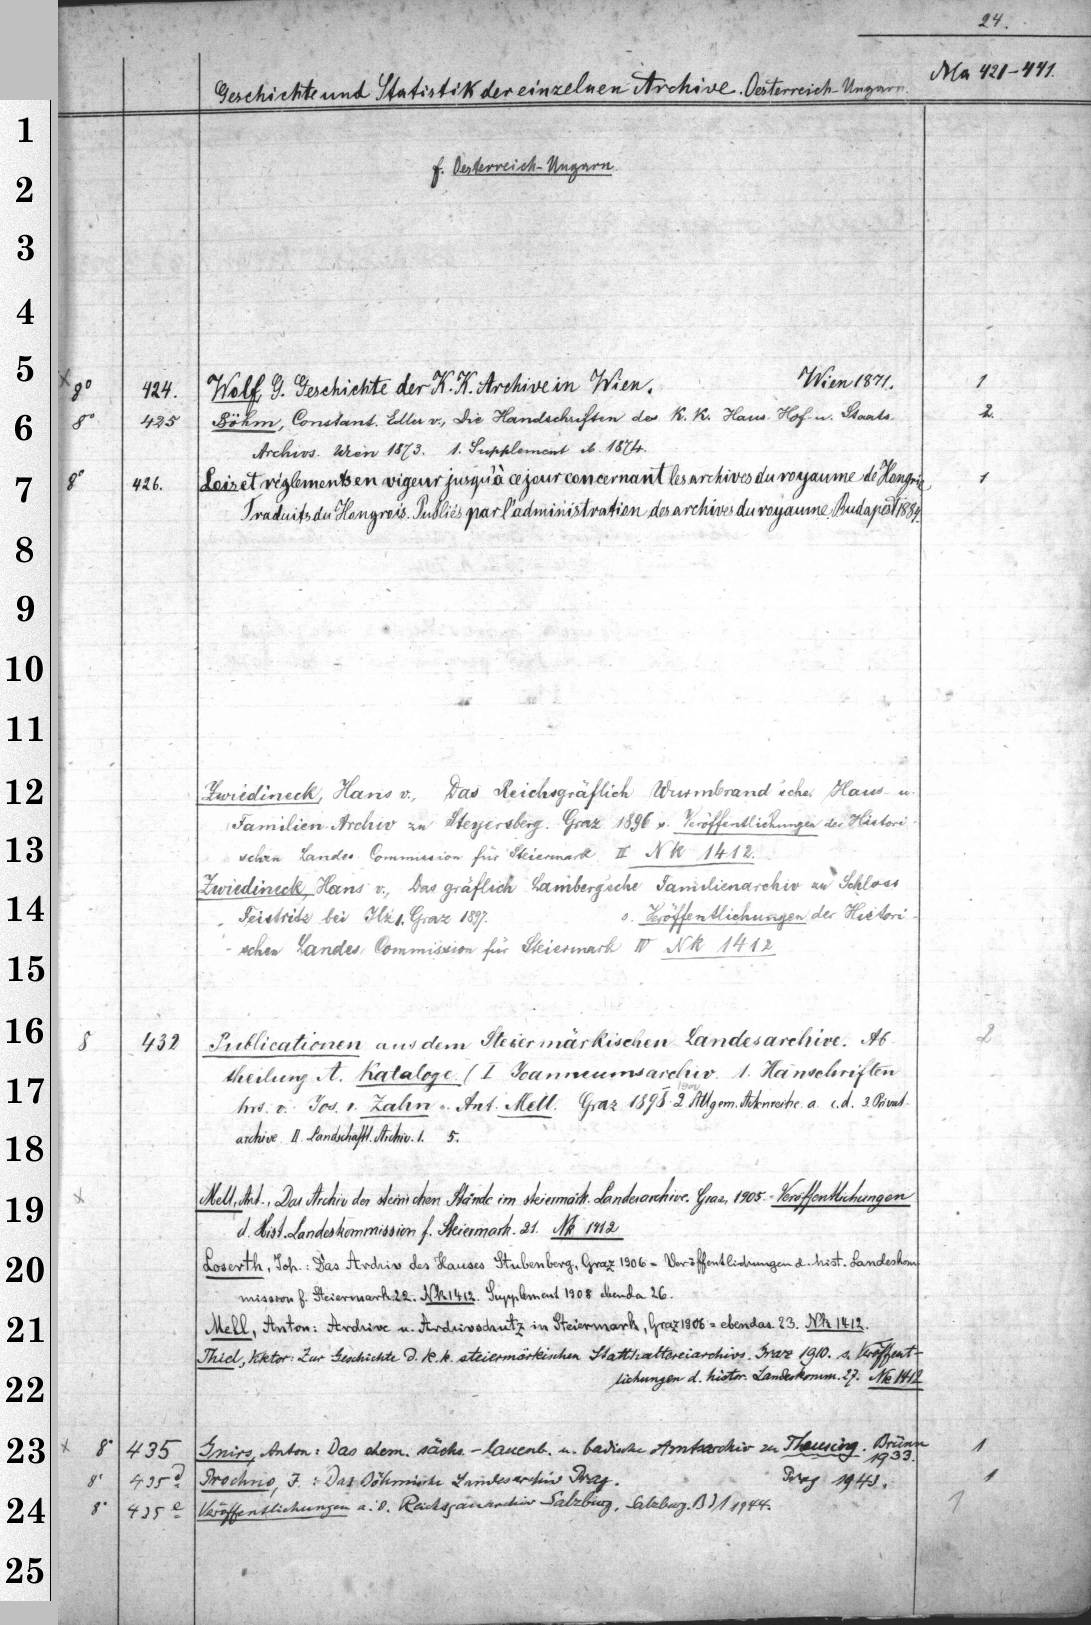 24.
Ma 421-441.
Geschichte und Statistik der einzelnen Archive. Oesterreich-Ungarn.
f. Oesterreich-Ungarn
1
2
3
4
5
× 8° 424. Wolf, G. Geschichte der K. K. Archive in Wien. Wien 1871. 1
6
8° 425 Böhm, Constant. Edler v., Die Handschriften des K. K. Haus- Hof- u. Staats-
2.
Archivs. Wien 1873. 1. Supplement ib. 1874.
7
8° 426. Lois et réglements en vigeur jusqu'à ce jour concernant les archives du royaume de Hongrie,
1
Traduits du Hongrois. Publiés par l'administration des archives du royaume, Budapest 1884.
8
9
10
11
12
Zwiedineck, Hans v., Das Reichsgräflich Wurmbrand'sche Haus- u.
Familien-Archiv zu Steyersberg. Graz 1896 s. Veröffentlichungen der Histori-
13
schen Landes Commission für Steiermark II Nk 1412.
Zwiedineck, Hans v., Das gräflich Lamberg'sche Familienarchiv zu Schloss
14
Feistritz bei Ilz 1. Graz 1897. s. Veröffentlichungen der Histori-
schen Landes Commission für Steiermark IV Nk 1412
15
16
8 432 Publicationen aus dem Steiermärkischen Landesarchive. Ab-
2
theilung A. Kataloge. (I Joanneumsarchiv. 1. Hanschriften
17
hrs. v. Jos. v. Zahn u. Ant. Mell. Graz 1898 2 Allgem. Aktenreihe a c.d. 3. Privat-
archive II. Landschaftl. Archiv. 1. 5.
18
19
× Mell, Ant., Das Archiv der steirischen Stände im steiermärk. Landesarchive. Graz, 1905. - Veröffentlichungen
d. Hist. Landeskommission f. Steiermark. 21. Nk 1412
20
Loserth, Joh.: Das Archiv des Hauses Stubenberg, Graz 1906 = Veröffentlichungen d. hist. Landeskom-
mission f. Steiermark 22. Nk 1412. Supplement 1908 ebenda 26.
21
Mell, Anton: Archive u. Archivschutz in Steiermark, Graz 1906 = ebendas. 23. Nk 1412.
Thiel, Viktor: Zur Geschichte d. k. k. steiermärkischen Statthaltereiarchivs. Graz 1910. s. Veröffent-
22
lichungen d. histor. Landeskomm. 27. Nk 1412
23
× 8° 435 Gnirs, Anton: Das ehem. sächs.-lauenb. u. badische Amtsarchiv zu Theusing. Brünn
1933.
1
8° 435 d Prochno, J.: Das Böhmische Landesarchiv Prag. Prag 1943. 1
24
8° 435 e Veröffentlichungen a. d. Reichsgauarchiv Salzburg, Salzburg. Bd 1 1944. 1
25